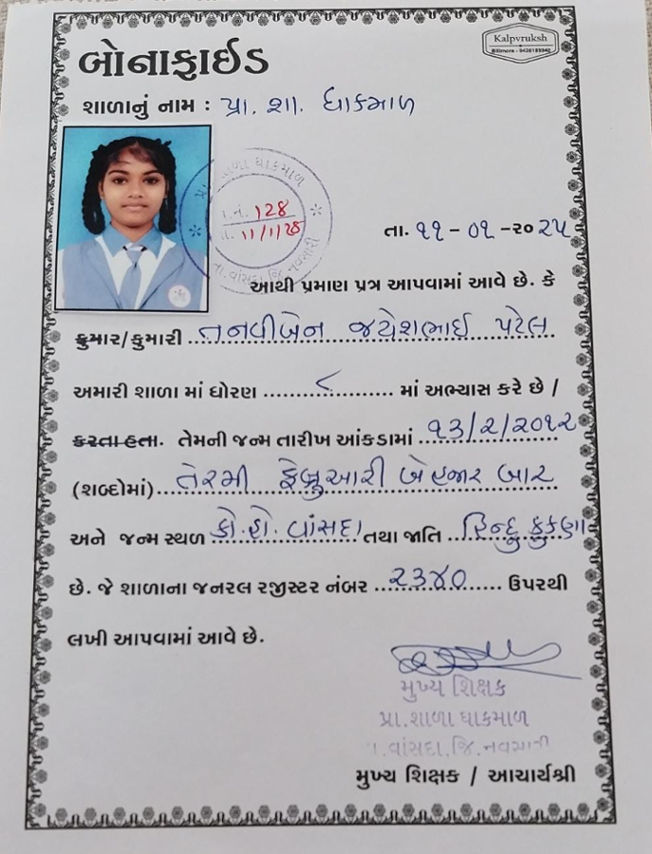 Kalpvruksh
બોનાફાઈડ
શાળાનું નામ : પ્રા. શા. ઘાકમાળ
પ્રા. શાળા ઘાકમાળ
જા.નં. 128
તા. 11/1/25
તા. વાંસદા, જિ. નવસારી
તા. ૧૧ - ૦૧ - ૨૦૨૫
આથી પ્રમાણ પત્ર આપવામાં આવે છે. કે
કુમાર/કુમારી તનવીબેન જયેશભાઈ પટેલ
અમારી શાળા માં ધોરણ ૮ માં અભ્યાસ કરે છે /
કરતા હતા. તેમની જન્મ તારીખ આંકડામાં ૧૩/૨/૨૦૧૨
(શબ્દોમાં) તેરમી ફેબ્રુઆરી બે હજાર બાર
અને જન્મ સ્થળ કો.હો. વાંસદા તથા જાતિ હિન્દુ કુકણા
છે. જે શાળાના જનરલ રજીસ્ટર નંબર ૨૩૪૦ ઉપરથી
લખી આપવામાં આવે છે.
મુખ્ય શિક્ષક
પ્રા.શાળા ઘાકમાળ
તા.વાંસદા,જિ.નવસારી
મુખ્ય શિક્ષક / આચાર્યશ્રી